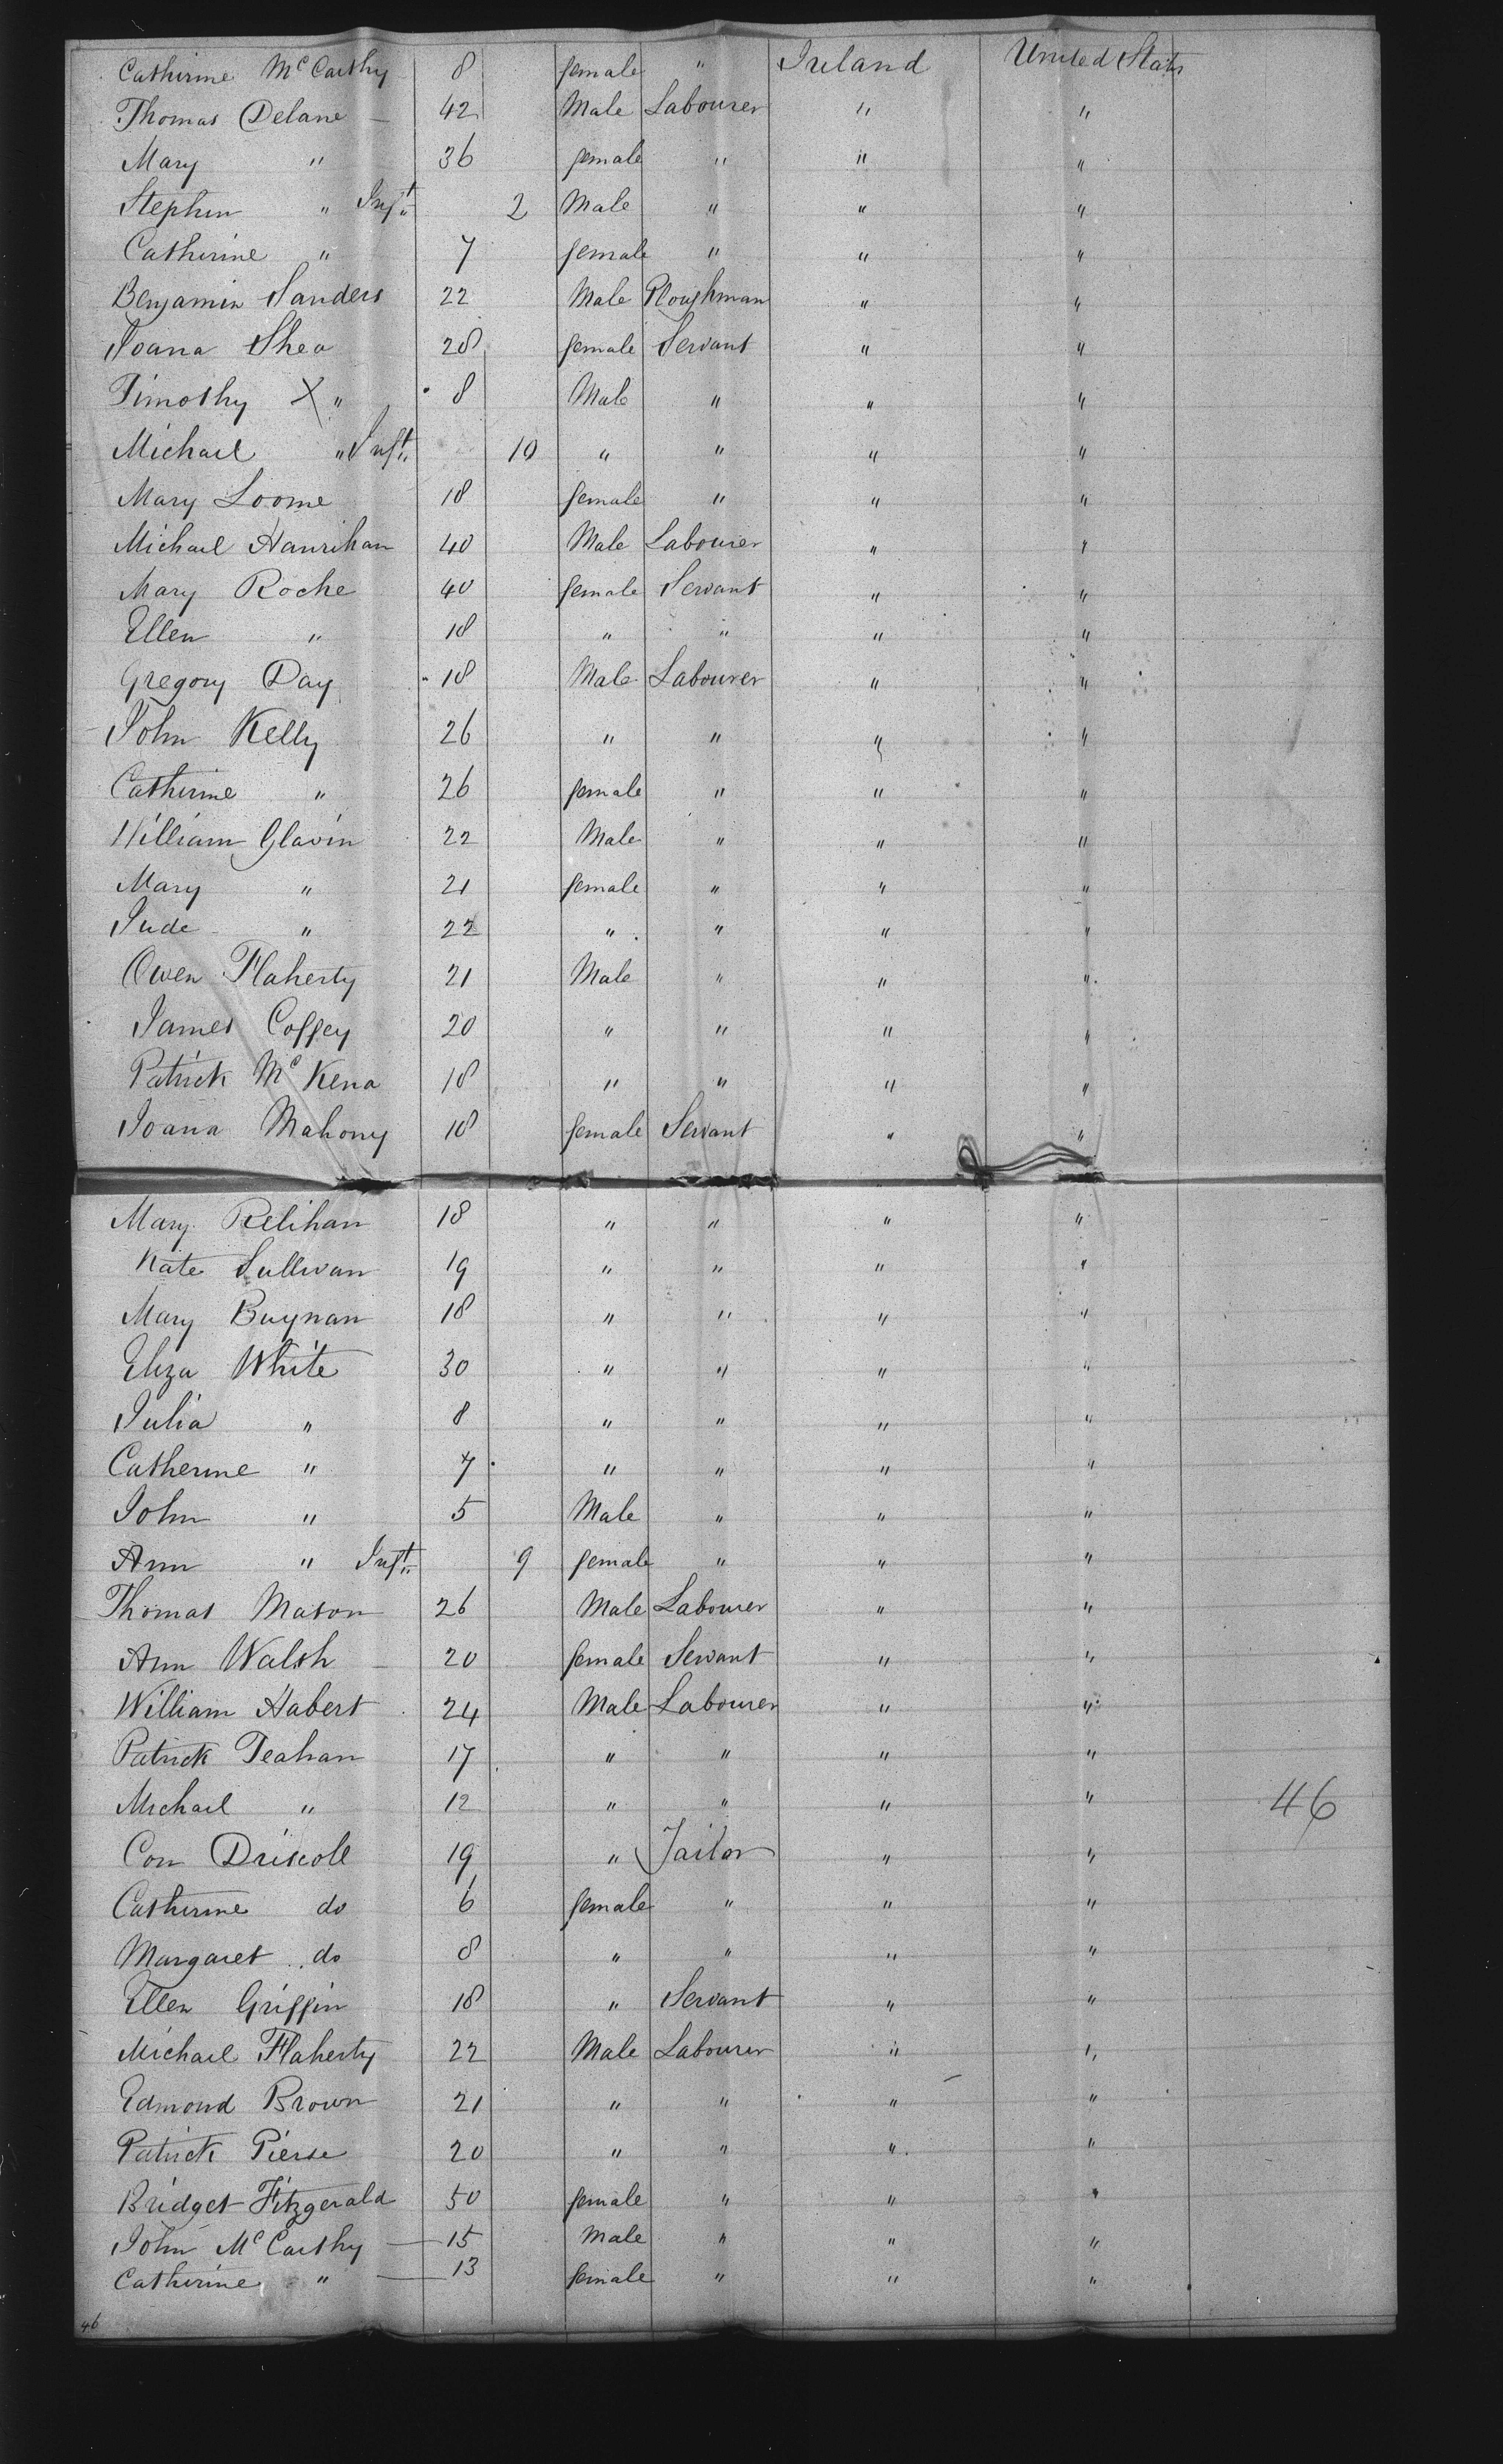 Catherine McCarthy 8 female " Ireland United States
Thomas Delane 42 Male Labourer " "
Mary " 36 female " " "
Stephen " Inft 2 Male " " "
Catherine " 7 female " " "
Benjamin Sanders 22 Male Ploughman " "
Joana Shea 28 female Servant " "
Timothy X " 8 Male " " "
Michael " Inft 10 " " " "
Mary Loome 18 female " " "
Michael Hanrihan 40 Male Labourer " "
Mary Roche 40 female Servant " "
Ellen " 18 " " " "
Gregory Day 18 Male Labourer " "
John Kelly 26 " " " "
Catherine " 26 female " " "
William Glavin 22 Male " " "
Mary " 21 female " " "
Jude " 22 " " " "
Owen Flaherty 21 Male " " "
James Coffey 20 " " " "
Patrick McKena 18 " " " "
Joana Mahony 18 female Servant " "
Mary Relihan 18 " " " "
Kate Sullivan 19 " " " "
Mary Buynan 18 " " " "
Eliza White 30 " " " "
Julia " 8 " " " "
Catherine " 7 " " " "
John " 5 Male " " "
Ann " Inft 9 female " " "
Thomas Mason 26 Male Labourer " "
Ann Walsh 20 female Servant " "
William Habert 24 Male Labourer " "
Patrick Teahan 17 " " " "
Michael " 12 " " " " 46
Con Driscoll 19 " Tailor " "
Catherine do 6 female " " "
Margaret do 8 " " " "
Ellen Griffin 18 " Servant " "
Michael Flaherty 22 Male Labourer " "
Edmond Brown 21 " " " "
Patrick Pierse 20 " " " "
Bridget Fitzgerald 50 female " " "
John McCarthy 15 Male " " "
Catherine " 13 female " " "
46